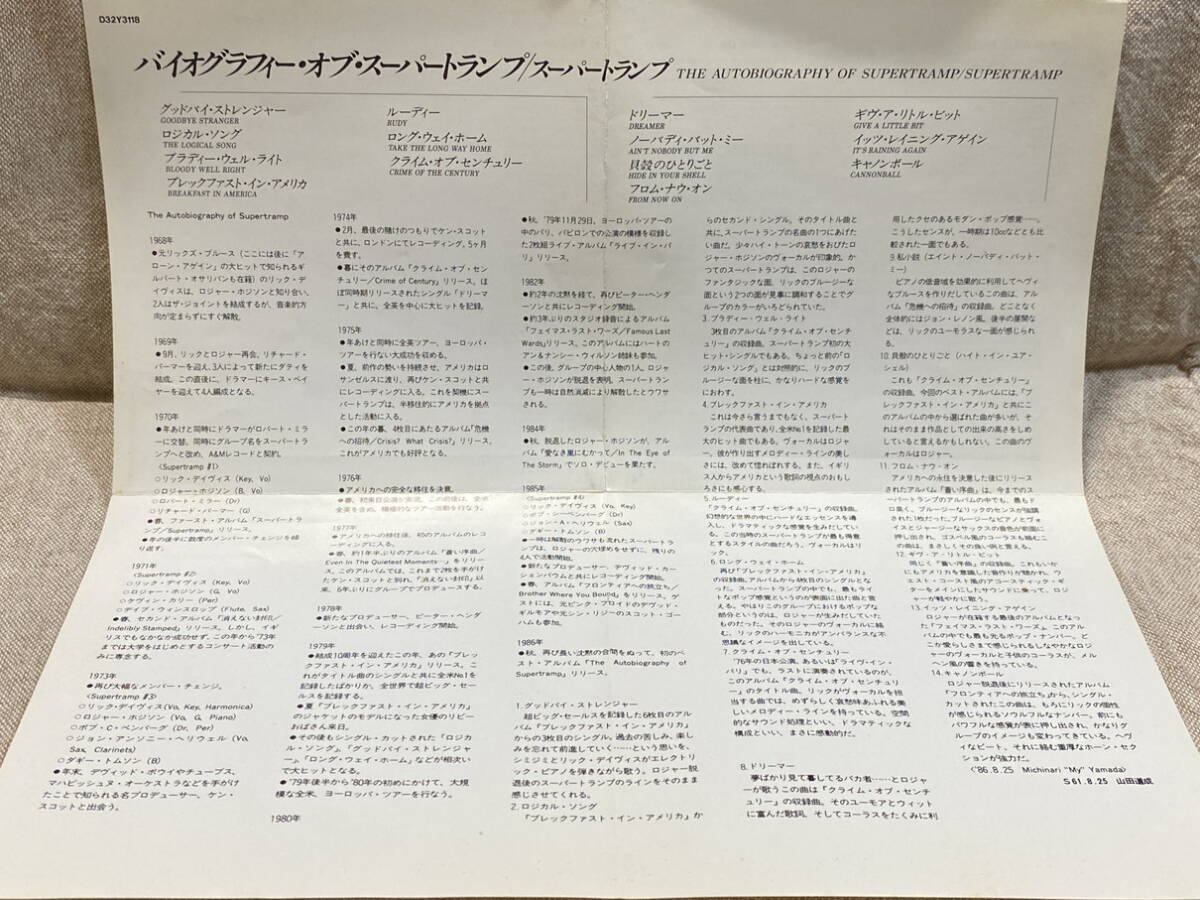 D32Y3118
バイオグラフィー・オブ・スーパートランプ/スーパートランプ THE AUTOBIOGRAPHY OF SUPERTRAMP/SUPERTRAMP
グッドバイ・ストレンジャー
GOODBYE STRANGER
ロジカル・ソング
THE LOGICAL SONG
ブラディー・ウェル・ライト
BLOODY WELL RIGHT
ブレックファスト・イン・アメリカ
BREAKFAST IN AMERICA
ルーディー
RUDY
ロング・ウェイ・ホーム
TAKE THE LONG WAY HOME
クライム・オブ・センチュリー
CRIME OF THE CENTURY
ドリーマー
DREAMER
ノーバディ・バット・ミー
AIN'T NOBODY BUT ME
貝殻のひとりごと
HIDE IN YOUR SHELL
フロム・ナウ・オン
FROM NOW ON
ギヴ・ア・リトル・ビット
GIVE A LITTLE BIT
イッツ・レイニング・アゲイン
IT'S RAINING AGAIN
キャノンボール
CANNONBALL
The Autobiography of Supertramp
1968年
●元リックズ・ブルース(ここには後に「ア
ローン・アゲイン」の大ヒットで知られるギ
ルバート・オサリバンも在籍)のリック・デ
イヴィスは、ロジャー・ホジソンと知り合い、
2人はザ・ジョイントを結成するが、音楽的方
向が定まらずにすぐ解散。
1969年
●9月、リックとロジャー再会、リチャード・
パーマーを迎え、3人によって新たにダディを
結成。この直後に、ドラマーにキース・ベイ
ヤーを迎えて4人編成となる。
1970年
●年あけと同時にドラマーがロバート・ミラ
ーに交替、同時にグループ名をスーパートラ
ンプへと改め、A&Mレコードと契約。
〈Supertramp #1〉
○リック・デイヴィス (Key, Vo)
○ロジャー・ホジソン (B, Vo)
○ロバート・ミラー (Dr)
○リチャード・パーマー (G)
●春、ファースト・アルバム「スーパートラ
ンプ/Supertramp」リリース。
●年の後半に数度のメンバー・チェンジを繰
り返す。
1971年
〈Supertramp #2〉
○リック・デイヴィス (Key, Vo)
○ロジャー・ホジソン (G, Vo)
○ケヴィン・カリー (Per)
○デイブ・ウィンスロップ (Flute, Sax)
●春、セカンド・アルバム「消えない封印/
Indelibly Stamped」リリース。しかし、イギ
リスでもなかなか成功せず、この年から'73年
までは大学をはじめとするコンサート活動の
みに専念する。
1973年
●再び大幅なメンバー・チェンジ。
〈Supertramp #3〉
○リック・デイヴィス(Vo, Key, Harmonica)
○ロジャー・ホジソン (Vo, G, Piano)
○ボブ・C・ベンバーグ (Dr, Per)
○ジョン・アンソニー・ヘリウェル (Vo,
Sax, Clarinets)
○ダギー・トムソン (B)
●年末、デヴィッド・ボウイやチューブス、
マハビッシュヌ・オーケストラなどを手がけ
たことで知られる名プロデューサー、ケン・
スコットと出会う。
1974年
●2月、最後の賭けのつもりでケン・スコット
と共に、ロンドンにてレコーディング。5ヶ月
を費す。
●暮にそのアルバム「クライム・オブ・セン
チュリー/Crime of Century」リリース。ほ
ぼ同時期リリースされたシングル「ドリーマ
ー」と共に、全英を中心に大ヒットを記録。
1975年
●年あけと同時に全英ツアー、ヨーロッパ・
ツアーを行ない大成功を収める。
●夏、前作の勢いを持続させ、アメリカはロ
サンゼルスに渡り、再びケン・スコットと共
にレコーディングに入る。これを契機にスー
パートランプは、半移住的にアメリカを拠点
とした活動に入る。
●この年の暮、4枚目にあたるアルバム「危機
への招待/Crisis? What Crisis?」リリース。
これがアメリカでも好評となる。
1976年
●アメリカへの完全な移住を決意。
●春、初来日公演が実現。この前後は、全米
全英を含め、積極的なツアー活動を行なう。
1977年
●アメリカへの移住後、初のアルバムのレコ
ーディングに入る。
●春、約1年半ぶりのアルバム「蒼い序曲/
Even In The Quietest Moments…」をリリー
ス。このアルバムでは、これまで2枚を手がけ
たケン・スコットと別れ、「消えない封印」以
来、6年ぶりにグループでプロデュースする。
1978年
●新たなプロデューサー、ピーター・ヘンダ
ーソンと出会い、レコーディング開始。
1979年
●結成10周年を迎えたこの年、あの「ブレッ
クファスト・イン・アメリカ」リリース。こ
れがタイトル曲のシングルと共に全米No1を
記録したばかりか、全世界で超ビッグ・セー
ルスを記録する。
●夏「ブレックファスト・イン・アメリカ」
のジャケットのモデルになった女優のリビー
おばさん来日。
●その後もシングル・カットされた「ロジカ
ル・ソング」、「グッドバイ・ストレンジャ
ー」、「ロング・ウェイ・ホーム」などが相次い
で大ヒットとなる。
●'79年後半から'80年の初めにかけて、大規
模な全米、ヨーロッパ・ツアーを行なう。
1980年
●秋、'79年11月29日、ヨーロッパ・ツアーの
中のパリ、パビロンでの公演の模様を収録し
た2枚組ライブ・アルバム「ライブ・イン・パ
リ」リリース。
1982年
●約2年の沈黙を経て、再びピーター・ヘンダ
ーソンと共にレコーディング開始。
●約3年ぶりのスタジオ録音によるアルバム
「フェイマス・ラスト・ワーズ/Famous Last
Words」リリース。このアルバムにはハートの
アン&ナンシー・ウィルソン姉妹も参加。
●この後、グループの中心人物の1人、ロジャ
ー・ホジソンが脱退を表明。スーパートラン
プも一時は自然消滅により解散したとウワサ
される。
1984年
●秋、脱退したロジャー・ホジソンが、アル
バム「愛なき嵐にむかって/In The Eye of
The Storm」でソロ・デビューを果たす。
1985年
〈Supertramp #4〉
○リック・デイヴィス (Vo, Key)
○ボブ・シーベンバーグ (Dr)
○ジョン・A・ヘリウェル (Sax)
○ダギー・トムソン (B)
●一時は解散のウワサも流れたスーパートラ
ンプは、ロジャーの穴埋めをせずに、残りの
4人で活動開始。
●新たなプロデューサー、デヴィッド・カー
シェンバウムと共にレコーディング開始。
●春、アルバム「フロンティアへの旅立ち/
Brother Where You Bound」をリリース。ゲ
ストには、元ピンク・フロイドのデヴッド・
ギルモアや元シン・リジーのスコット・ゴ
ーハムも参加。
1986年
●秋、再び長い沈黙の合間をぬって、初のベ
スト・アルバム「The Autobiography of
Supertramp」リリース。
1. グッドバイ・ストレンジャー
超ビッグ・セールスを記録した6枚目のアル
バム「ブレックファスト・イン・アメリカ」
からの3枚目のシングル。過去の苦しみ、楽し
みを忘れて前進していく……という思いを、
シミジミとリック・デイヴィスがエレクトリ
ック・ピアノを弾きながら歌う。ロジャー脱
退後のスーパートランプのラインをそのまま
感じさせてくれる。
2. ロジカル・ソング
「ブレックファスト・イン・アメリカ」か
らのセカンド・シングル。そのタイトル曲と
共に、スーパートランプの名曲の1つにあげた
い曲だ。少々ハイ・トーンの哀愁をおびたロ
ジャー・ホジソンのヴォーカルが印象的。か
つてのスーパートランプは、このロジャーの
ファンタジックな面、リックのブルージーな
面という2つの面が見事に調和することでグ
ループのカラーがいろどられていた。
3. ブラディー・ウェル・ライト
3枚目のアルバム「クライム・オブ・センチ
ュリー」の収録曲。スーパートランプ初の大
ヒット・シングルでもある。ちょっと前の「ロ
ジカル・ソング」とは対照的に、リックのブ
ルージーな面を柱に、かなりハードな感覚を
におわす。
4. ブレックファスト・イン・アメリカ
これは今さら言うまでもなく、スーパート
ランプの代表曲であり、全米No1を記録した最
大のヒット曲でもある。ヴォーカルはロジャ
ー。彼が作り出すメロディー・ラインの美し
さには、改めて惚れぼれする。また、イギリ
ス人からアメリカという歌詞の視点のおもし
ろさにも感心する。
5. ルーディー
「クライム・オブ・センチュリー」の収録曲。
幻想的な世界の中にハードなエッセンスを導
入し、ドラマティックな感覚を生みだしてい
る。この当時のスーパートランプが最も得意
とするスタイルの曲だろう。ヴォーカルはリ
ック。
6. ロング・ウェイ・ホーム
再び「ブレックファスト・イン・アメリカ」
の収録曲。アルバムから4枚目のシングルとな
った。スーパートランプの中でも、最もライ
トなポップ感覚というのが表面に出た曲と言
える。やはりこのグループにおけるポップな
部分というのは、ロジャーが生みだしていた
ものだった。そのロジャーのヴォーカルに絡
む、リックのハーモニカがアンバランスな不
思議なイメージを出している。
7. クライム・オブ・センチュリー
'76年の日本公演、あるいは「ライヴ・イン・
パリ」でも、ラストに演奏されているのが、
このアルバム「クライム・オブ・センチュリ
ー」のタイトル曲。リックがヴォーカルを担
当する曲では、めずらしく哀愁味あふれる美
しいメロディー・ラインを持っている。空間
的なサウンド処理といい、ドラマティックな
構成といい、まさに感動的だ。
8. ドリーマー
夢ばかり見て暮してるバカ者……とロジャ
ーが歌うこの曲は「クライム・オブ・センチ
ュリー」の収録曲。そのユーモアとウィット
に富んだ歌詞、そしてコーラスをたくみに利
用したクセのあるモダン・ポップ感覚……。
こうしたセンスが、一時期は10ccなどとも比
較された一面でもある。
9. 私小説 (エイント・ノーバディ・バット・
ミー)
ピアノの低音域を効果的に利用してヘヴィ
なブルースを作りだしているこの曲は、アル
バム「危機への招待」の収録曲。どことなく
全体的にはジョン・レノン風。後半の展開な
どは、リックのユーモラスな一面が感じられ
る。
10. 貝殻のひとりごと (ハイト・イン・ユア・
シェル)
これも「クライム・オブ・センチュリー」
の収録曲。今回のベスト・アルバムには、「ブ
レックファスト・イン・アメリカ」と共にこ
のアルバムの中から選ばれた曲が多いが、そ
れはそのまま作品としての出来の高さをしめ
していると言えるかもしれない。この曲のヴ
ォーカルはロジャー。
11. フロム・ナウ・オン
アメリカへの永住を決意した後にリリース
されたアルバム「蒼い序曲」は、今までのスー
パートランプのアルバムの中でも、最もド
ロ臭く、ブルージーなリックのセンスが強調
された1枚だった。ブルージーなピアノとヴォ
イスとジャージーなサックスの音色が前面に
押し出され、ゴスペル風のコーラスも絡むこ
の曲は、まさしくその良い例と言える。
12. ギヴ・ア・リトル・ビット
同じく「蒼い序曲」の収録曲。これもいか
にもアメリカを意識した音作りが働かれ、ウ
エスト・コースト風のアコースティック・ギ
ターをメインにしたサウンドに乗って、ロジ
ャーが軽やかに歌う。
13. イッツ・レイニング・アゲイン
ロジャーが在籍する最後のアルバムとなっ
た「フェイマス・ラスト・ワーズ」。このアル
バムの中でも最も光るポップ・ナンバー。ど
こか愛らしさまで感じられるしなやかなロジ
ャーのヴォーカルと子供のコーラスが、メル
ヘン風の響きを持っている。
14. キャノンボール
ロジャー脱退後にリリースされたアルバム
「フロンティアへの旅立ち」から、シングル・
カットされたこの曲は、もろにリックの個性
が感じられるソウルフルなナンバー。前にも
パワフルな感覚が表に押し出され、かなりグ
ループのイメージも変わってきている。ヘヴ
ィなビート、それに絡む重厚なホーン・セク
ションが強力だ。
〈'86.8.25 Michinari "My" Yamada〉
S61.8.25 山田道成